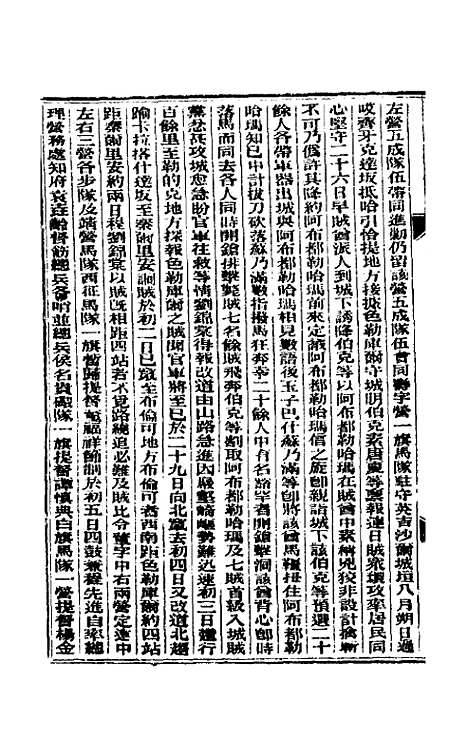 左營五成隊伍帶同進勦仍留該營五成隊伍會同聯字營一旗馬隊駐守英吉沙爾城垣八月朔日過
哎齊牙克達坂抵哈引恰提地方接據色勒庫爾守城明伯克素唐夏等稟報連日賊衆環攻率居民同
心堅守二十六日早賊酋派人到城下誘降伯克等以阿布都勒哈瑪在賊酋中素稱兇狡非設計擒斬
不可乃僞許其降約阿布都勒哈瑪前來定議阿布都勒哈瑪信之旋卽親詣城下該伯克等預選二十
餘人各帶軍器出城與阿布都勒哈瑪相見數語後玉子巴什蘇乃滿等卽將該酋馬韁扭住阿布都勒
哈瑪知已中計拔刀砍落蘇乃滿數指撥馬狂奔二十餘人中有名 罕者開鎗擊洞該酋背心卽時
落馬而同去各人同時開鎗排擊斃賊七名餘賊飛奔伯克等割取阿布都勒哈瑪及七賊首級入城賊
黨忿甚攻城愈急盼官軍往救等情劉錦棠得報改道由山路急進因嚴壑崎嶇勢難迅速初三日纔行
百餘里至勒的克地方探報色勒庫爾之賊聞官軍將至已於二十九日向北竄去初四日又改道北趨
踰卡拉塔什達坂至泰爾里安詗賊於初二日已竄至布倫可地方布倫可者西南距色勒庫爾約四站
距泰爾里安約兩日程劉錦棠以賊旣相距四站若不覓路繞追必難及賊比令董字中右兩營定遠中
左右三營各步隊及靖營馬隊西征馬隊一旗暫歸提督 福祥節制於初五日四鼓兼程先進自率總
理營務處知府袁垚齡督飭總兵 哈並總兵侯名貴礮隊一旗提督譚愼典白旗馬隊一營提督楊金